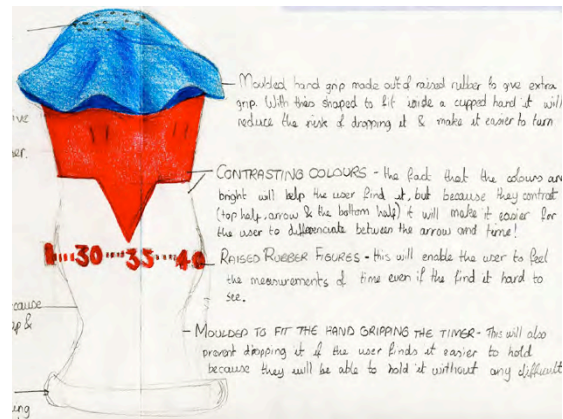 Moulded hand grip made out of raised rubber to give extra
grip. With this shaped to fit inside a cupped hand it will
reduce the risk of dropping it & make it easier to turn.
ive
er.
CONTRASTING COLOURS - the fact that the colours are
bright will help the user find it, but because they contrast
(top half, arrow & the bottom half) it will make it easier for
the user to differenciate between the arrow and time!
30 35 40
RAISED RUBBER FIGURES - this will enable the user to feel
the measurements of time even if the find it hard to
see.
ecause
p &
MOULDED TO FIT THE HAND GRIPPING THE TIMER - This will also
prevent dropping it if the user finds it easier to hold
because they will be able to hold it without any difficult
ing